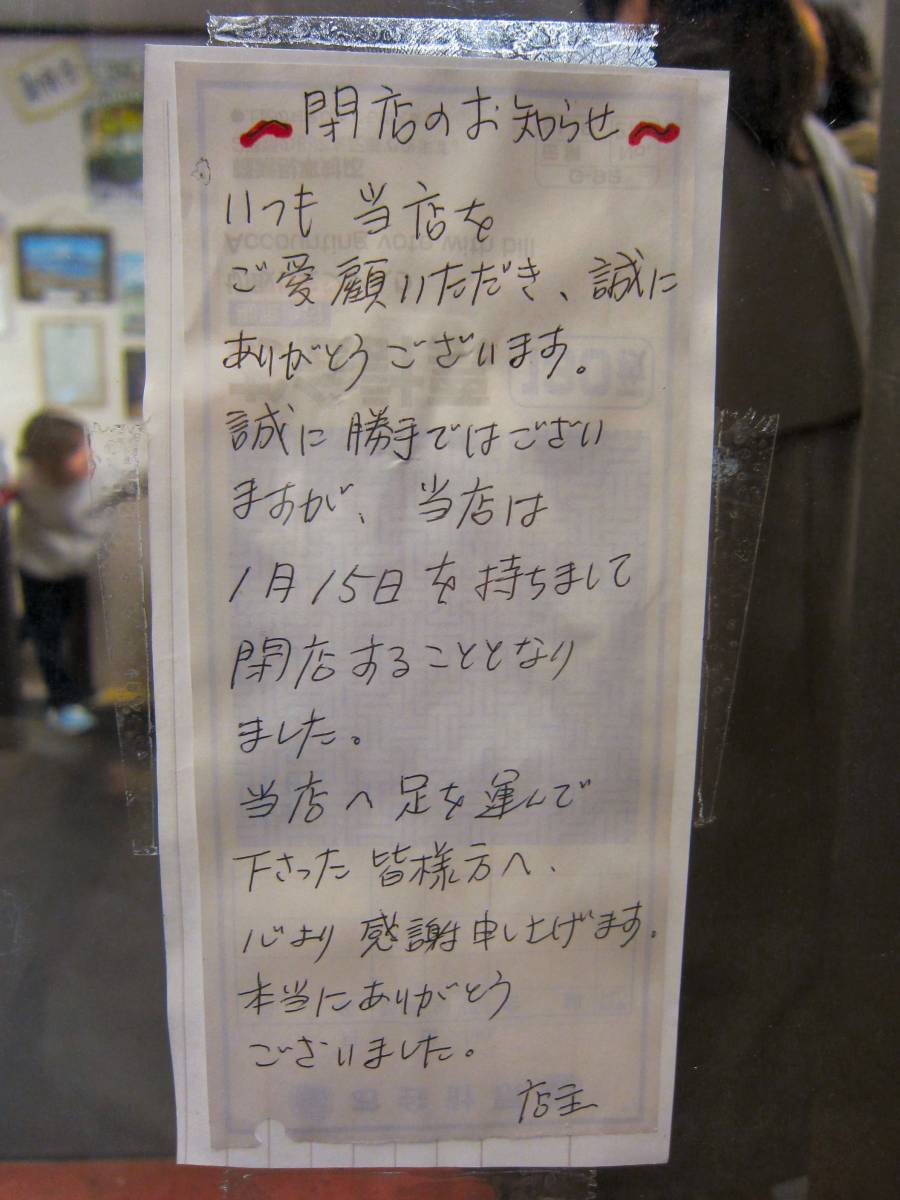 ~閉店のお知らせ~
いつも 当店を
ご愛顧いただき、誠に
ありがとうございます。
誠に勝手ではござい
ますが、当店は
1月15日を持ちまして
閉店することとなり
ました。
当店へ足を運んで
下さった皆様方へ、
心より感謝申し上げます。
本当にありがとう
ございました。
店主